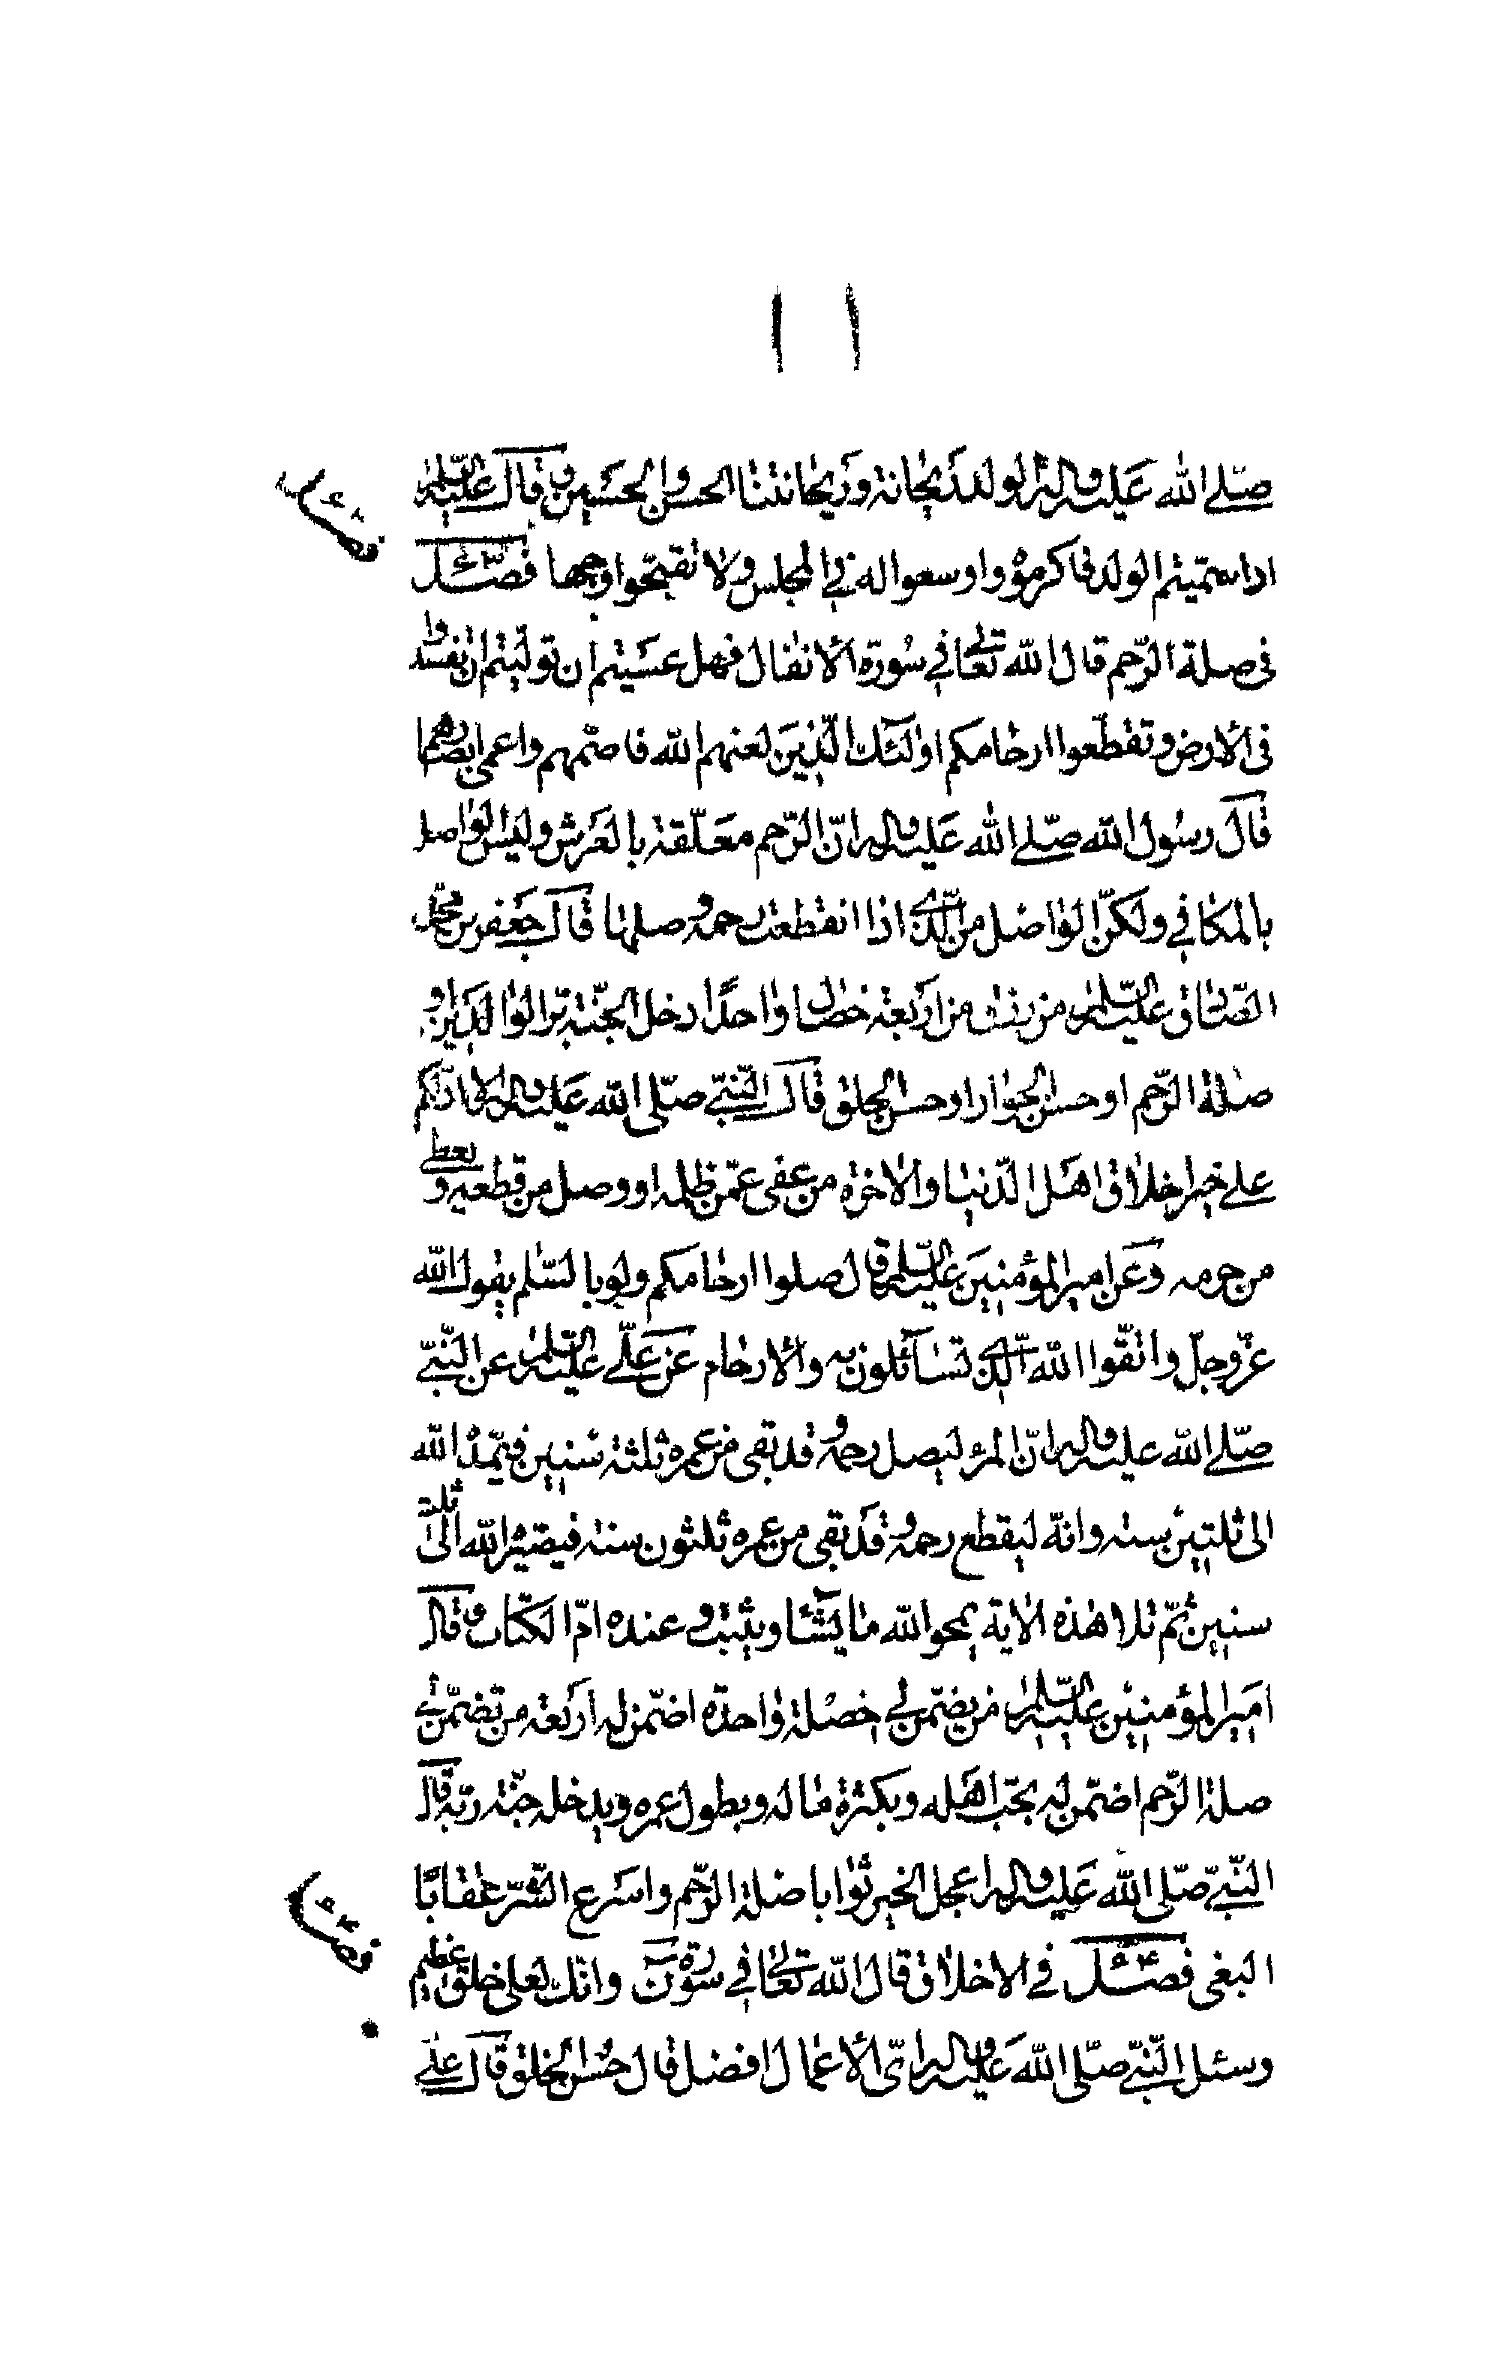 ١١
صلّى الله عليه وآله الولد ريحانة وريحانتنا الحسن والحسين وقال عليه السلام
اذا سمّيتم الولد فاكرموه واوسعوا له فى المجلس ولا تقبّحوا وجها فصل
فى صلة الرّحم قال الله تعالى فى سورة الانفال فهل عسيتم ان تولّيتم ان تفسدوا
فى الارض وتقطّعوا ارحامكم اولئك الّذين لعنهم الله فاصمّهم واعمى ابصارهم
قال رسول الله صلّى الله عليه وآله انّ الرّحم معلّقة بالعرش وليس الواصل
بالمكافى ولكنّ الواصل من الّذى اذا انقطعت رحمه وصلها قال جعفر بن محمّد
الصّادق عليه السلام من من اربعة خصال واحدا دخل الجنّة برّ الوالدين او
صلة الرّحم او حسن الجوار او حسن الخلق قال النّبىّ صلّى الله عليه وآله الا ادلّكم
على خير اخلاق اهل الدّنيا والاخرة من عفى عمّن ظلمه او وصل من قطعه ويعطى
من حرمه وعن امير المؤمنين عليه السلام قال صلوا ارحامكم ولو بالسّلم يقول الله
عزّ وجلّ واتّقوا الله الّذى تسائلون به والارحام عن علىّ عليه السلام عن النّبىّ
صلّى الله عليه وآله انّ المرء ليصل رحمه وقد بقى من عمره ثلثة سنين فيمدّه الله
الى ثلثين سنة وانّه ليقطع رحمه وقد بقى من عمره ثلثون سنة فيصيّره الله الى ثلث
سنين ثمّ تلا هذه الاية يمحو الله ما يشاء ويثبت وعنده امّ الكتاب وقال
امير المؤمنين عليه السلام من يضمن لى خصلة واحدة اضمن له اربعة من تضمّن لى
صلة الرّحم اضمن له بحبّ اهله وبكثرة ماله وبطول عمره ويدخله جنّة ربّه قال
النّبىّ صلّى الله عليه وآله اعجل الخير ثوابا صلة الرّحم واسرع الشّرّ عقابًا
البغى فصل فى الاخلاق قال الله تعالى فى سورة ن وانّك لعلى خلق عظيم
وسئل النّبىّ صلّى الله عليه وآله اىّ الاعمال افضل قال حسن الخلق قال علىّ